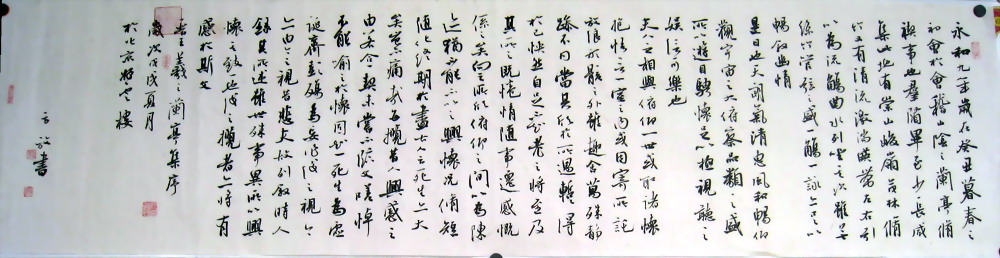 永和九年歲在癸丑暮春之
初會於會稽山陰之蘭亭脩
禊事也羣賢畢至少長咸
集此地有崇山峻嶺茂林脩
竹又有清流激湍暎帶左右引
以為流觴曲水列坐其次雖無
絲竹管弦之盛一觴一詠亦足以
暢敘幽情
是日也天朗氣清惠風和暢仰
觀宇宙之大俯察品類之盛
所以遊目騁懷足以極視聽之
娛信可樂也
夫人之相與俯仰一世或取諸懷
抱悟言一室之內或因寄所託
放浪形骸之外雖趣舍萬殊靜
躁不同當其欣於所遇暫得
於己快然自足不知老之將至及
其所之既惓情隨事遷感慨
係之矣向之所欣俯仰之間以為陳
迹猶不能不以之興懷況脩短
隨化終期於盡古人云死生亦大
矣豈不痛哉每攬昔人興感之
由若合一契未嘗不臨文嗟悼
不能喻之於懷固知一死生為虛
誕齊彭殤為妄作後之視今
亦由今之視昔悲夫故列敘時人
錄其所述雖世殊事異所以興
懷其致一也後之攬者亦將有
感於斯文
書王羲之蘭亭集序
歲次戊戌夏月
於北京
書